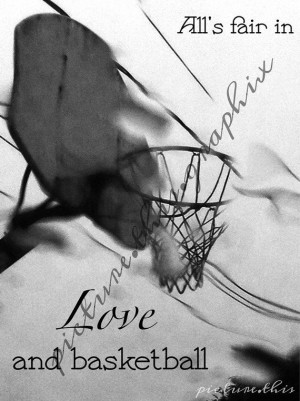 All's fair in
picture.this.pographixx
Love
and basketball
picture.this